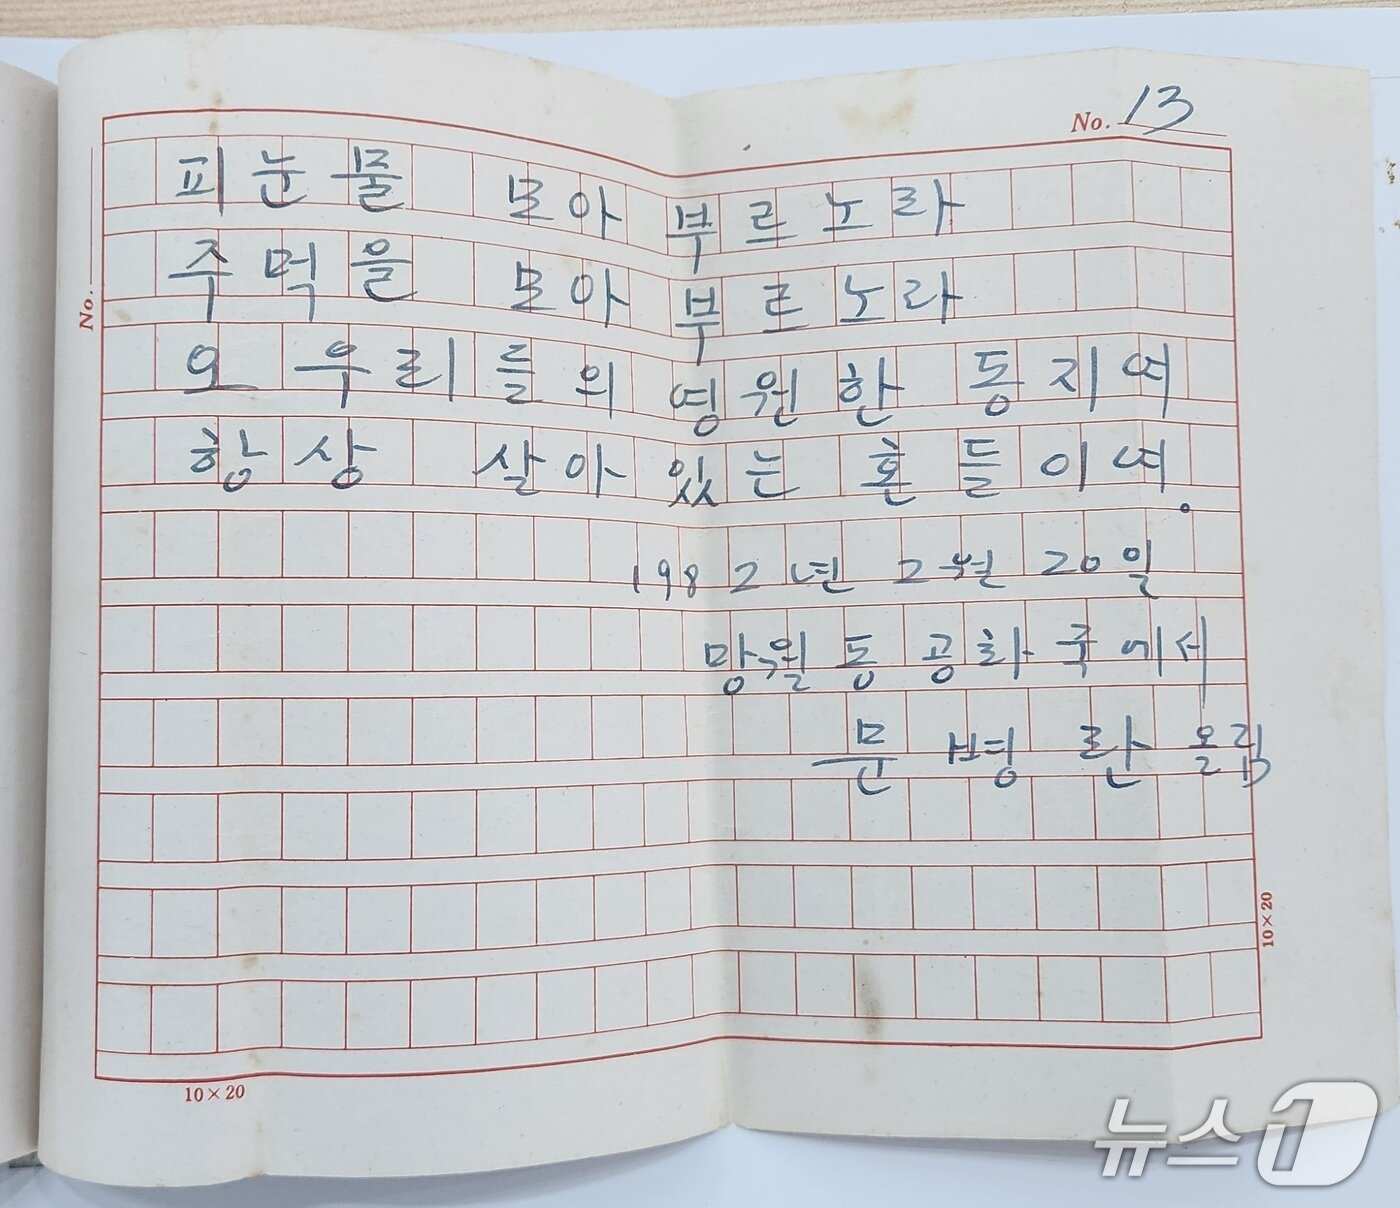 No. 13
피눈물 모아 부르노라
주먹을 모아 부르노라
오 우리들의 영원한 동지여
항상 살아 있는 혼들이여.
1982년 2월 20일
망월동 공화국에서
문병란 올림
No.
10×20
10×20
뉴스1